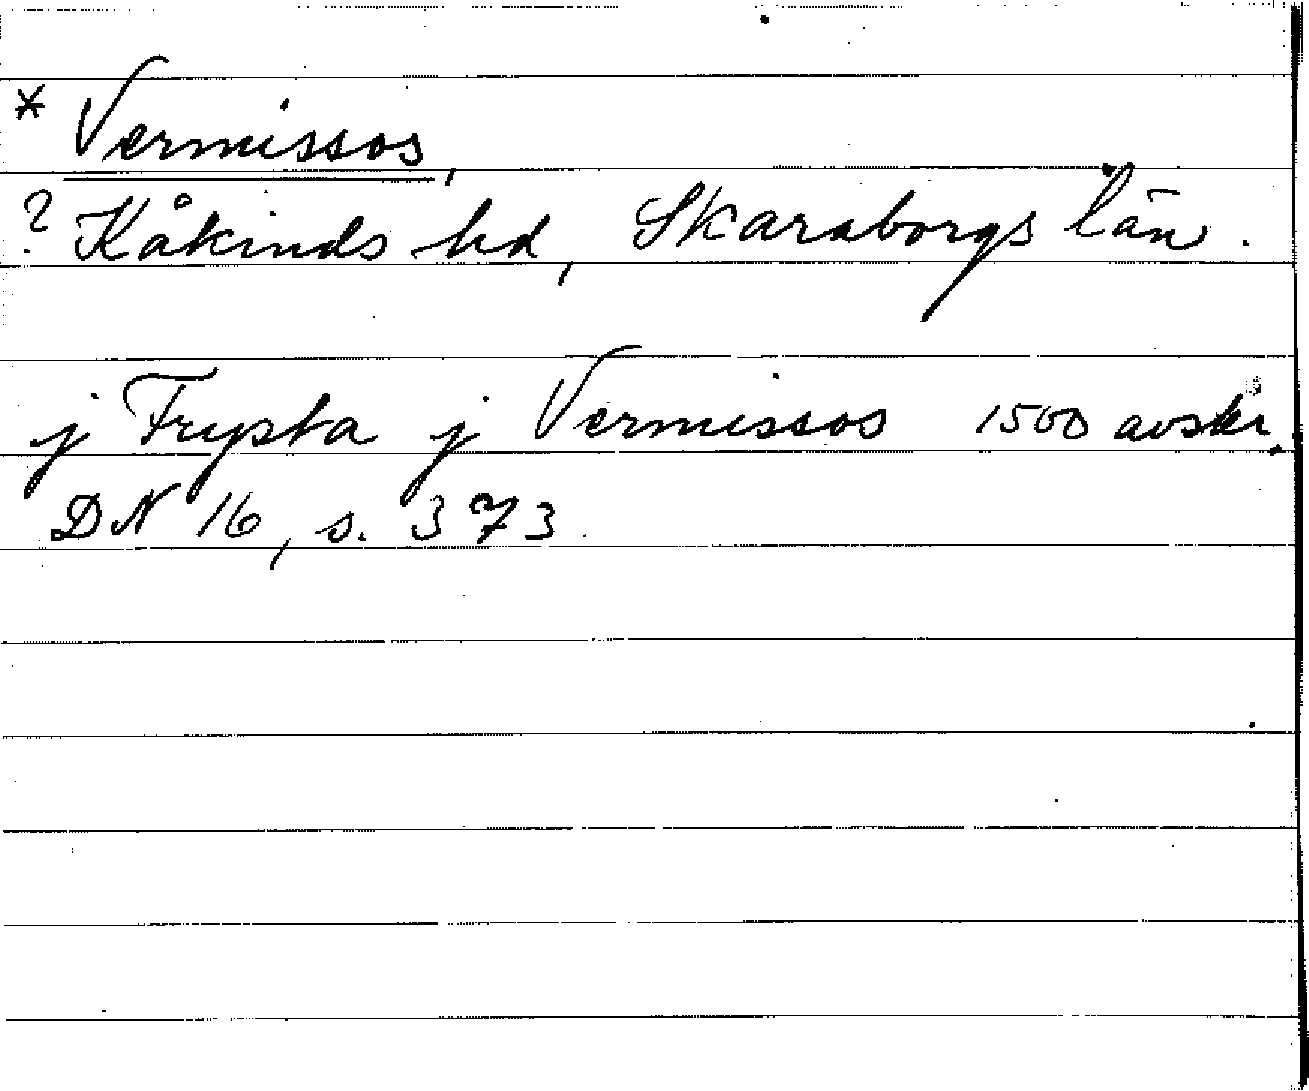 * Vermissos,
? Kåkinds hd, Skaraborgs län.
j Frysta j Vermissos 1500 avskr.
DN 16, s. 373.